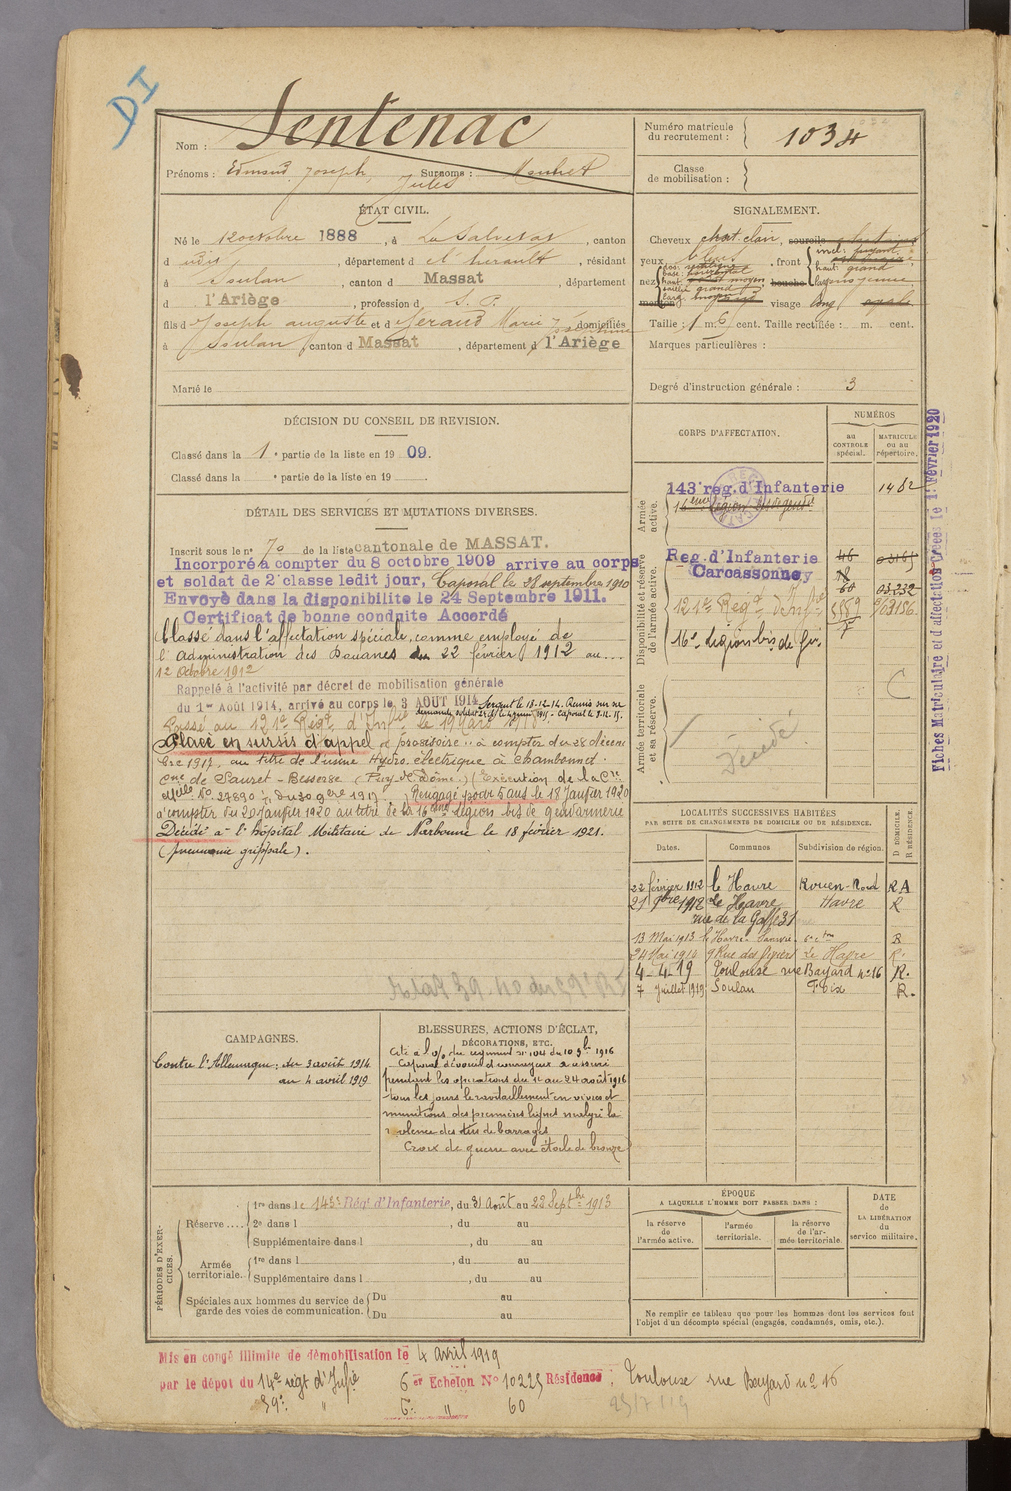 DI
Nom : Sentenac
Prénoms : Edmond Joseph Jules Surnoms :
Numéro matricule du recrutement : 1034
Classe de mobilisation :
ÉTAT CIVIL.
Né le 12 octobre 1888, à La Salvetat, canton
d udit, département d e l'herault, résidant
à Soulan, canton d Massat, département
d l'Ariège, profession d S. P.
fils d Joseph auguste et d Geraud Marie Joséphine domiciliés
à Soulan, canton d Massat, département d l'Ariège
Marié le
SIGNALEMENT.
Cheveux chat. clair, sourcils
yeux bleus, front incl: fuyant
haut: grand
larg: moyenne
nez dos:
base:
haut: moyen
saillie grand
larg: moyenne
bouche
menton visage long
Taille : 1 m. 6 cent. Taille rectifiée : m. cent.
Marques particulières :
Degré d'instruction générale : 3
DÉCISION DU CONSEIL DE REVISION.
Classé dans la 1e partie de la liste en 1909.
Classé dans la e partie de la liste en 19
CORPS D'AFFECTATION.
NUMÉROS
au CONTROLE spécial.
MATRICULE ou au répertoire.
Armée active.
143e reg. d'Infanterie 1462
Disponibilité et réserve de l'armée active.
Reg. d'Infanterie 46 03165
Carcassonne
60 03232
121e Regt d'Infie 8889 9/03156
16e Légion bis de gie 7
Armée territoriale et sa réserve.
Décédé
Fiches Matriculaire et d'affectation créées le 1er Février 1920
DÉTAIL DES SERVICES ET MUTATIONS DIVERSES.
Inscrit sous le n° 70 de la liste cantonale de MASSAT.
Incorporé à compter du 8 octobre 1909 arrive au corps
et soldat de 2e classe ledit jour, Caporal le 28 septembre 1910
Envoyé dans la disponibilite le 24 Septembre 1911.
Certificat de bonne conduite Accordé
Classé dans l'affectation spéciale, comme employé de
l'administration des Douanes du 22 février 1912 au....
12 octobre 1912
Rappelé à l'activité par décret de mobilisation générale
du 1er Août 1914, arrivé au corps le 3 AOUT 1914 Sergent le 18-12-14. Remis sur sa
demande soldat 2e cl. 1915 - Caporal le 8-12-15.
Passé au 121e Regt d'Infie le 19 Mars 1916
Placé en sursis d'appel et provisoire à compter du 28 décem
bre 1917, au titre de l'usine Hydro. électrique à Chambonnet.
Cne de Sauret-Besserve (Puy-de-Dôme.) (Exécution de la Cre
Mlle No 27890 du 30 9bre 1917) Rengagé pour 5 ans le 18 Janvier 1920
à compter du 20 Janvier 1920 au titre de la 16eme Légion bis de gendarmerie
Décédé à l'hôpital Militaire de Narbonne le 18 février 1921.
(pneumonie grippale).
LOCALITÉS SUCCESSIVES HABITÉES
PAR SUITE DE CHANGEMENTS DE DOMICILE OU DE RÉSIDENCE.
Dates. Communes Subdivision de région. D DOMICILE. R RÉSIDENCE.
22 février 1912 le Havre Rouen-Nord RA
21 9bre 1912 le Havre Havre R
rue de la Gaffe 31
13 Mai 1913 le Havre R
24 Mai 1914 9 Rue des Le Havre R.
4-4-19 Toulouse rue Bayard n° 16 R.
7 Juillet 1919 Soulan Foix R.
CAMPAGNES.
Contre l'Allemagne : du 3 août 1914
au 4 avril 1919
BLESSURES, ACTIONS D'ÉCLAT, DÉCORATIONS, ETC.
Cité à l'o/ du régiment n° 104 du 10 9bre 1916
Caporal dévoué et courageux a assuré
pendant les opérations du 14 au 24 août 1916
tous les jours le ravitaillement en vivres et
munitions des premières lignes malgré la
violence des tirs de barrages
Croix de guerre avec étoile de bronze
PÉRIODES D'EXERCICES.
Réserve .... 1re dans le 143e Régt d'Infanterie, du 31 Août au 22 Septbre 1913
2e dans l , du au
Supplémentaire dans l , du au
Armée territoriale. 1re dans l , du au
Supplémentaire dans l , du au
Spéciales aux hommes du service de garde des voies de communication. Du au
Du au
ÉPOQUE
A LAQUELLE L'HOMME DOIT PASSER DANS :
la réserve de l'armée active.
l'armée territoriale.
la réserve de l'armée territoriale.
DATE de LA LIBÉRATION du service militaire.
Ne remplir ce tableau que pour les hommes dont les services font
l'objet d'un décompte spécial (engagés, condamnés, omis, etc.).
Mis en congé illimité de démobilisation le 4 avril 1919
par le dépot du 14e régt d'Infie 6er Echelon N° 10225 Résidence : Toulouse rue Bayard n° 16
59e " 6e " 60